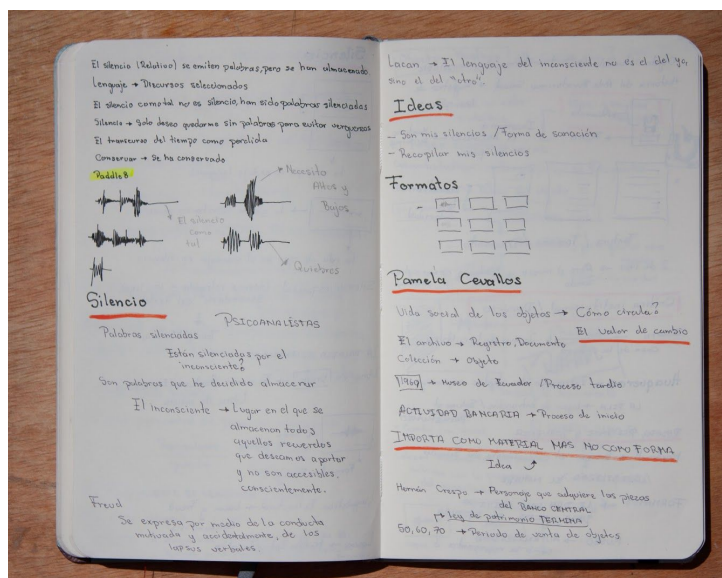 El silencio (Relativo) se emiten palabras, pero se han almacenado
Lenguaje → Discursos seleccionados
El silencio como tal no es silencio, han sido palabras silenciadas
Silencio → Solo deseo quedarme sin palabras para evitar vergüenzas
El transcurso del tiempo como perdida
Conservar → Se ha conservado
Paddle8
Necesito
Altos y
Bajos
El silencio
como
tal
Quiebres
Silencio
PSICOANALÍSTAS
Palabras silenciadas
Están silenciadas por el
inconsciente?
Son palabras que he decidido almacenar
El inconsciente → Lugar en el que se
almacenan todos
aquellos recuerdos
que deseamos apartar
y no son accesibles,
conscientemente.
Freud
Se expresa por medio de la conducta
motivada y accidentalmente, de los
lapsus verbales.
Lacan → El lenguaje del inconsciente no es el del yo,
sino el del "otro".
Ideas
- Son mis silencios / Forma de sanación
- Recopilar mis silencios
Formatos
-
Pamela Cevallos
Vida social de los objetos → Cómo circula?
El valor de cambio
El archivo → Registro, Documento
Colección → Objeto
1969 → Museo de Ecuador / Proceso tardío
ACTIVIDAD BANCARIA → Proceso de inicio
IMPORTA COMO MATERIAL MAS NO COMO FORMA
Idea
Hernán Crespo → Personaje que adquiere las piezas
del BANCO CENTRAL
→ Ley de patrimonio TERMINA
50, 60, 70 → Periodo de venta de objetos